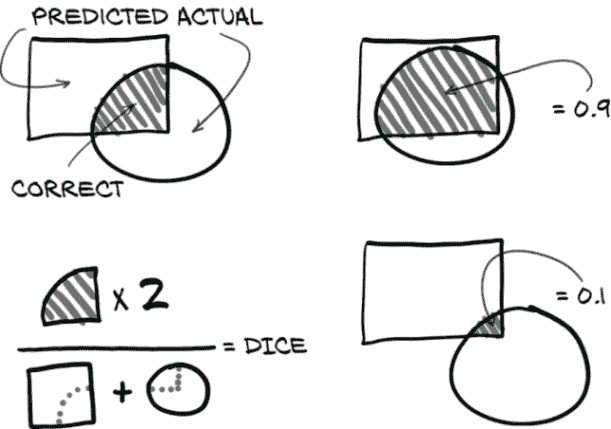 PREDICTED ACTUAL
CORRECT
= 0.9
x 2
+
= DICE
= 0.1